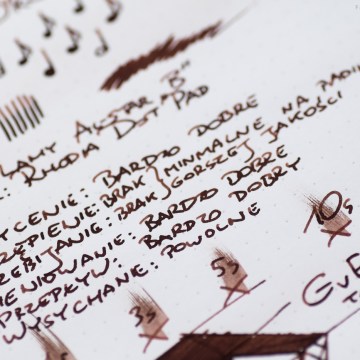 LAMY ALSTAR "B"
: RHODIA DOT PAD
YCENIE: BARDZO DOBRE
ZĘPIENIE: BRAK } MINIMALNE NA PAPI
ZEBIJANIE: BRAK } GORSZEJ JAKOŚCI
IENIOWANIE: BARDZO DOBRE
PRZEPŁYW: BARDZO DOBRY
WYSYCHANIE: POWOLNE
10s
5s
3s
GvF